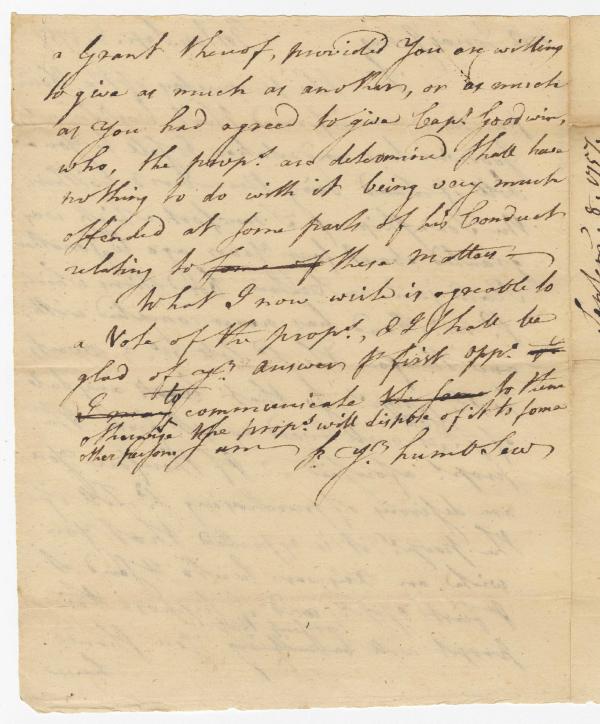 a Grant thereof, provided You are willing
to give as much as another, or as much
as You had agreed to give Capt. Goodwin,
who, the props. are determined shall have
nothing to do with it being very much
offended at some parts of his Conduct
relating to some of these matters—
What I now write is agreable to
a Vote of the props. & I shall be
glad of yr. answer pr. first oppo.
I may to communicate the same to them
otherwise the props. will dispose of it to some
other person I am Sr. yr. humb Serv
8. 1757.